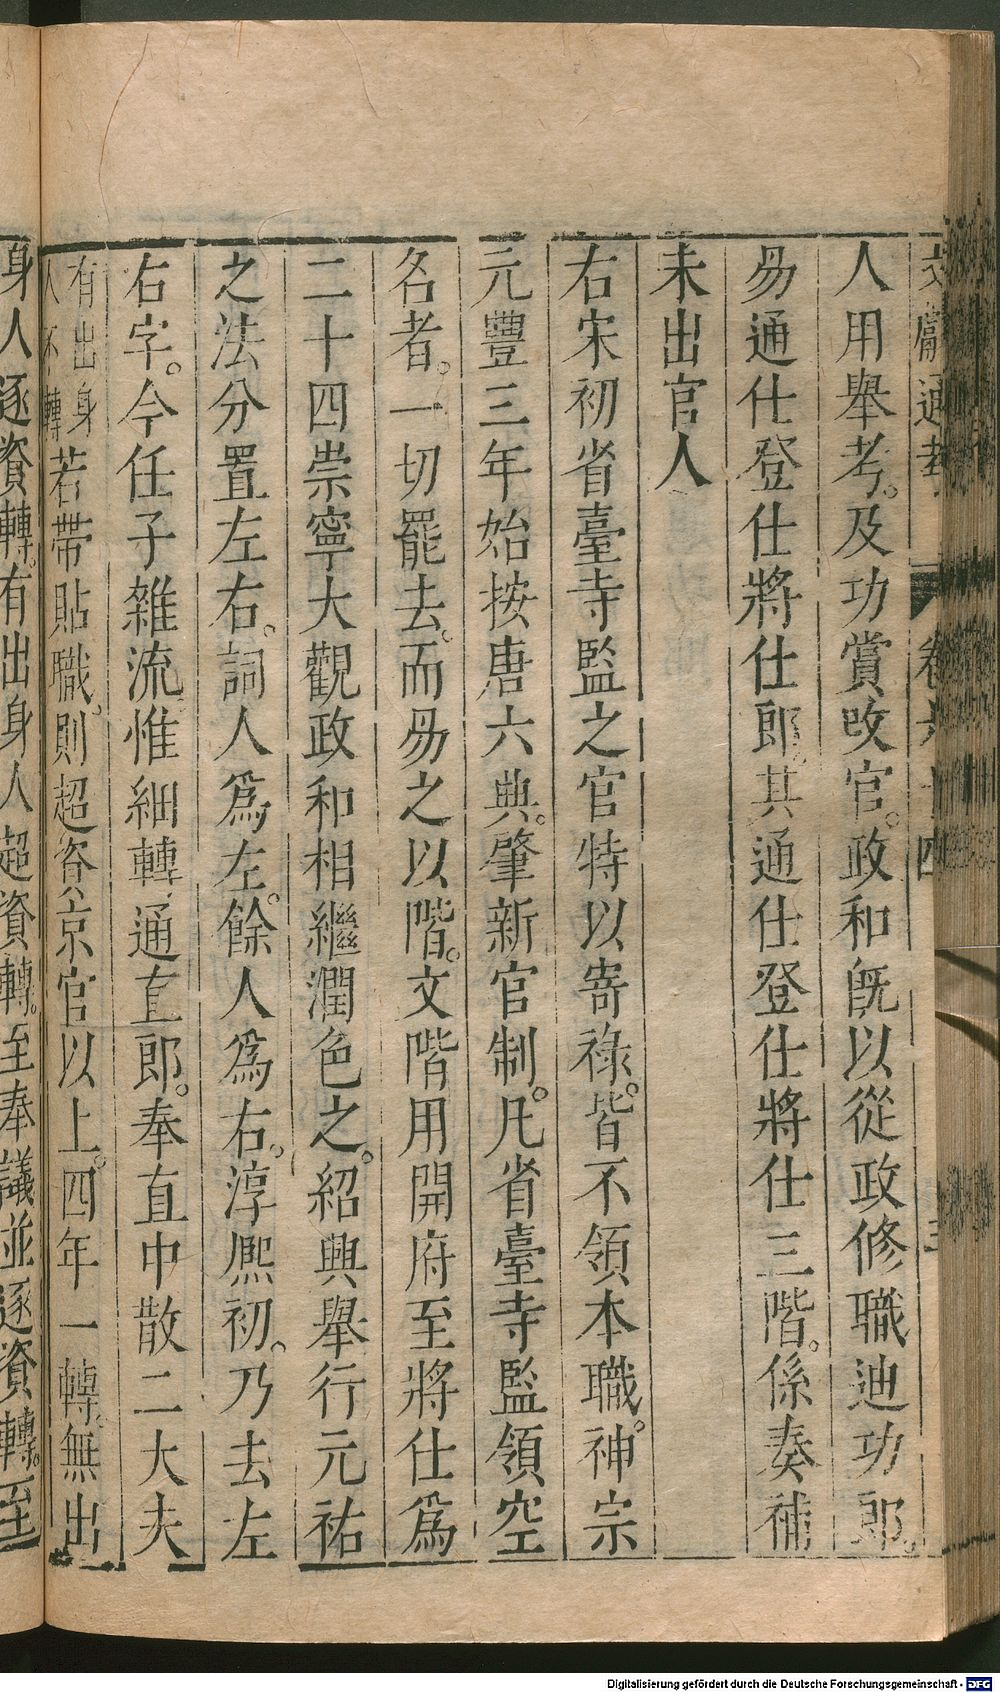 文獻通考 卷六十四
人用舉考。及功賞改官。政和旣以從政修職迪功郎。
易通仕登仕將仕郎。其通仕登仕將仕三階。係奏補
未出官人
右宋初省臺寺監之官特以寄祿。皆不領本職。神宗
元豐三年始按唐六典。肇新官制。凡省臺寺監領空
名者。一切罷去。而易之以階。文階用開府至將仕爲
二十四崇寧大觀政和相繼潤色之。紹興舉行元祐
之法分置左右。詞人爲左。餘人爲右。淳熈初。乃去左
右字。今任子雜流惟細轉通直郎。奉直中散二大夫
有出身人不轉若帶貼職。則超資公京官以上。四年一轉。無出
身人逐資轉。有出身人超資轉。至奉議並逐資轉。至
Digitalisierung gefördert durch die Deutsche Forschungsgemeinschaft - DFG